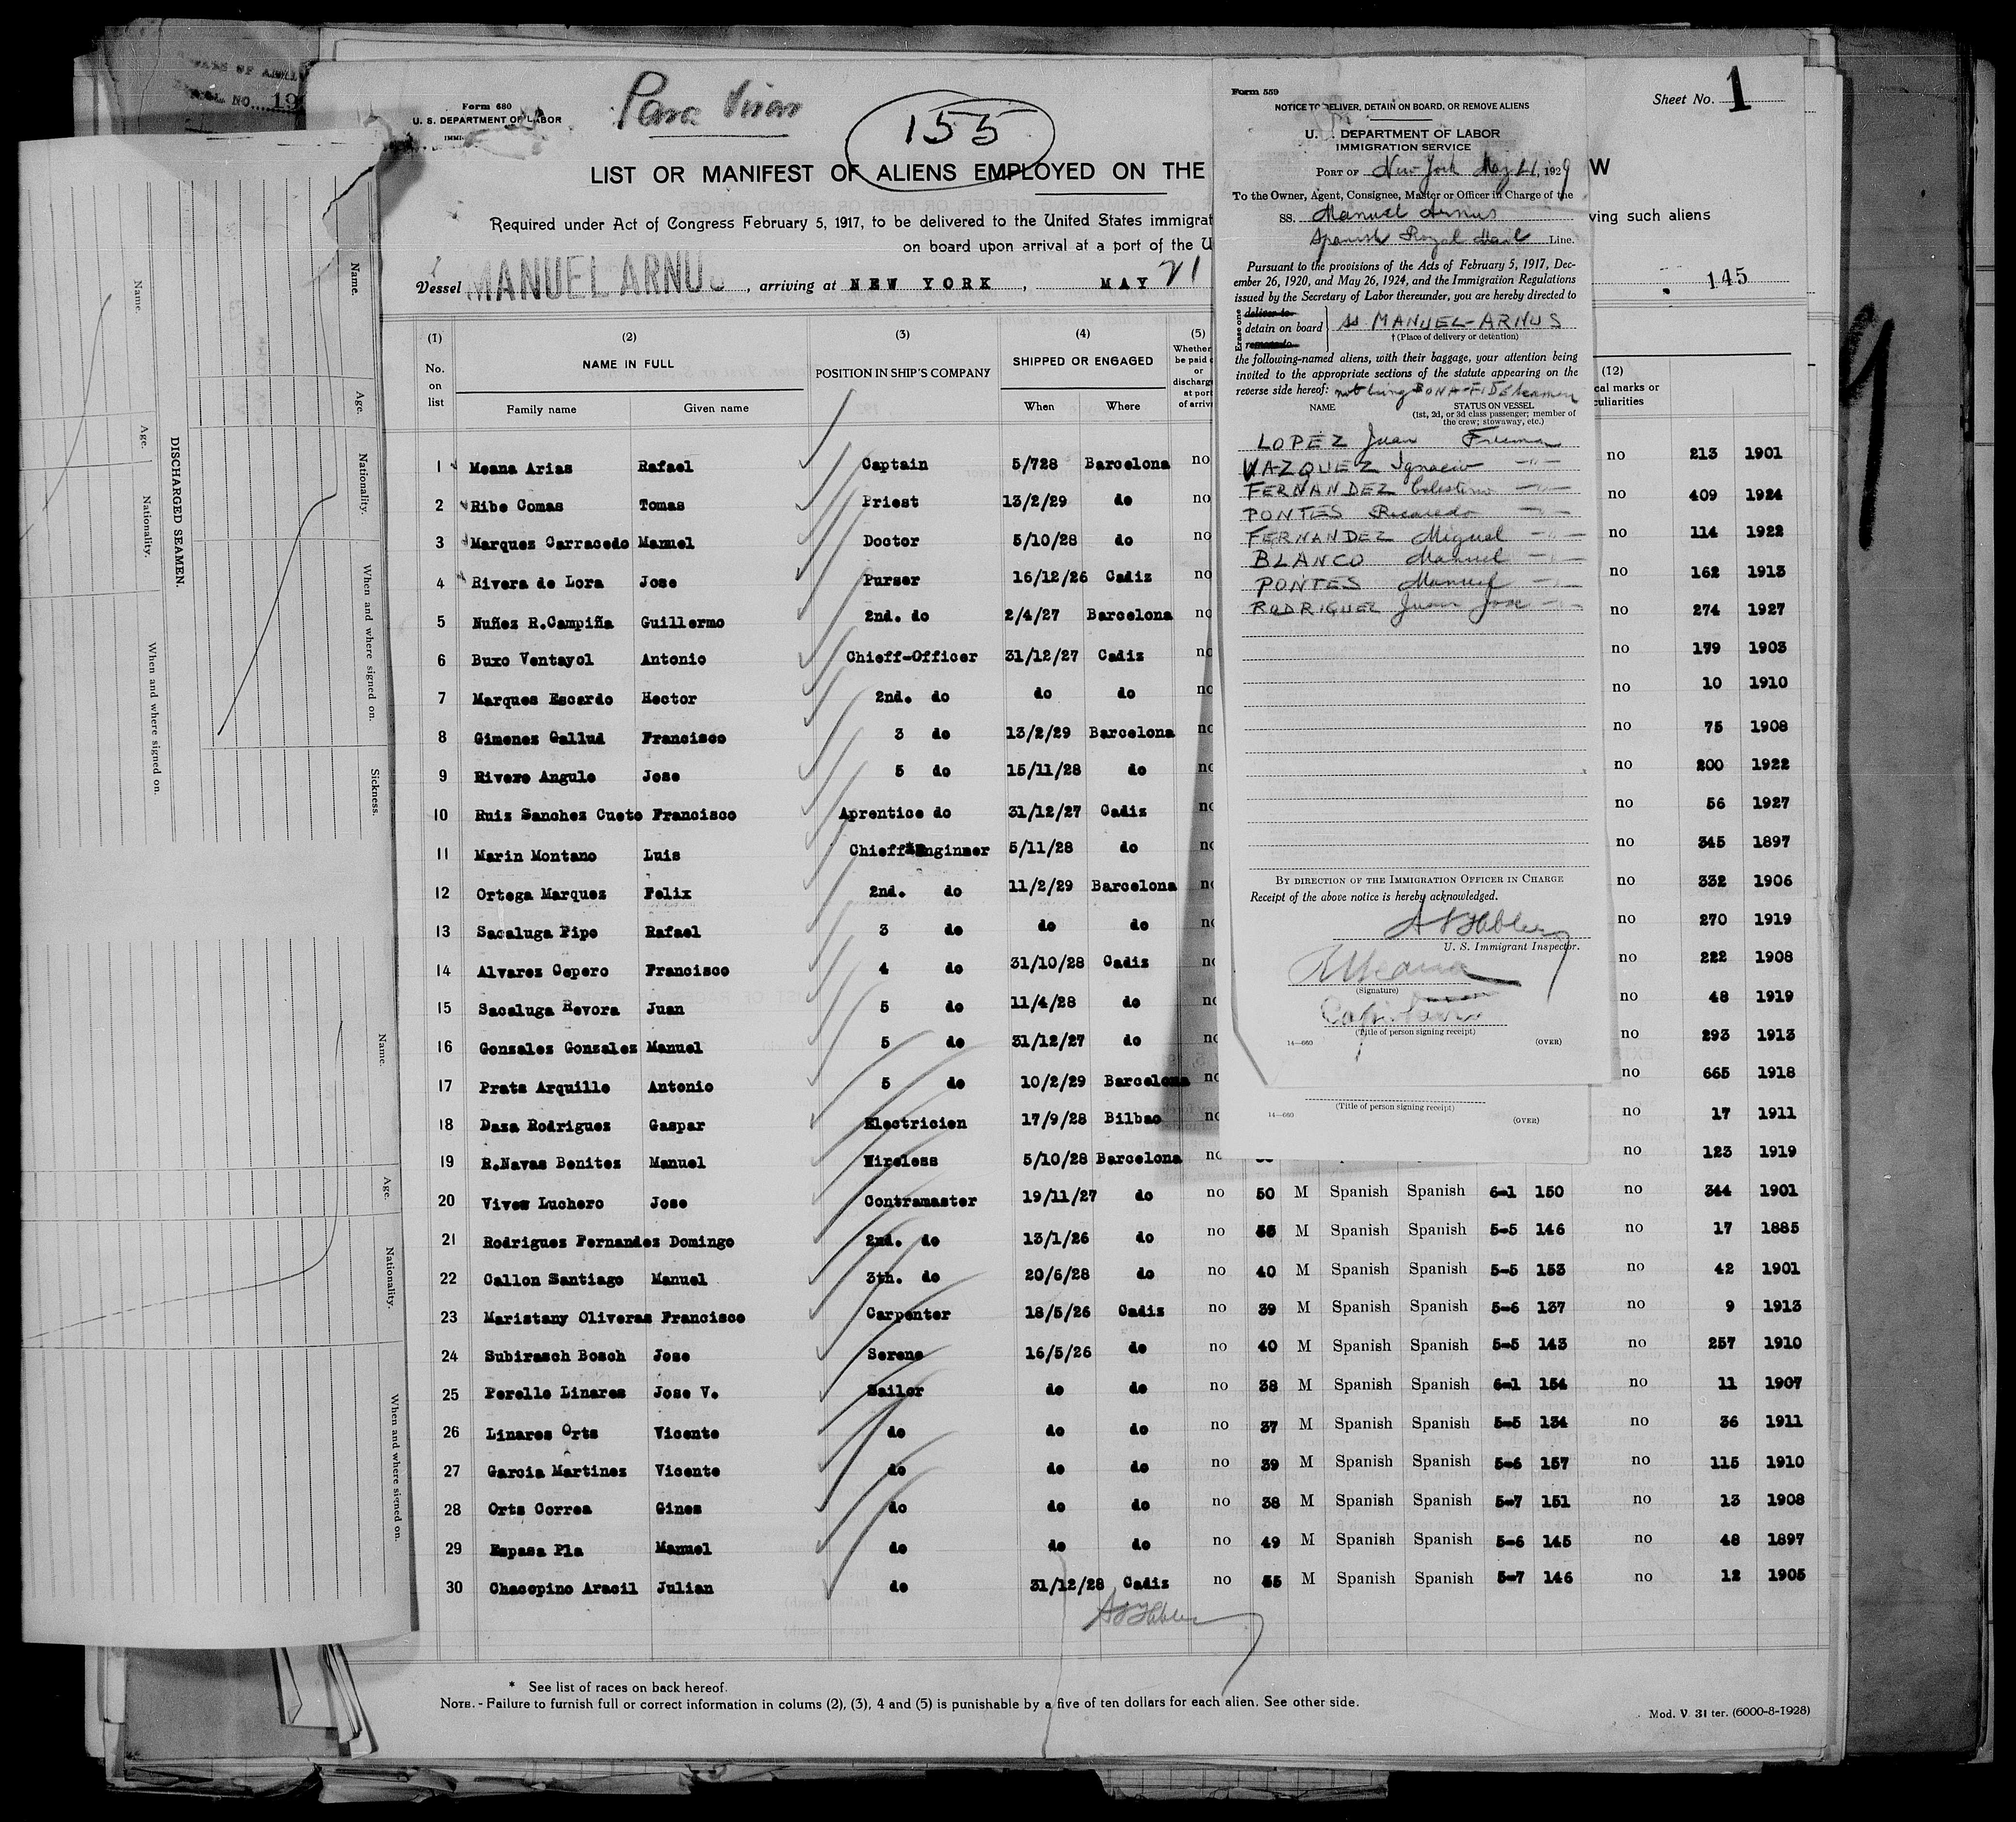 Form 680
U. S. DEPARTMENT OF LABOR
155
Sheet No. 1
LIST OR MANIFEST OF ALIENS EMPLOYED ON THE
W
Required under Act of Congress February 5, 1917, to be delivered to the United States immigrat
ving such aliens
on board upon arrival at a port of the U
Vessel MANUEL ARNUS, arriving at NEW YORK, MAY 21
145
(1) (2) (3) (4) (5) (12)
No. on list NAME IN FULL POSITION IN SHIP'S COMPANY SHIPPED OR ENGAGED Whether be paid or discharg at port of arriv cal marks or culiarities
Family name Given name When Where
1 Meana Arias Rafael Captain 5/728 Barcelona no no 213 1901
2 Ribe Comas Tomas Priest 13/2/29 do no no 409 1924
3 Marquez Carracedo Manuel Doctor 5/10/28 do no no 114 1922
4 Rivera de Lora Jose Purser 16/12/26 Cadiz no no 162 1913
5 Nuñez R.Campiña Guillermo 2nd. do 2/4/27 Barcelona no no 274 1927
6 Buxo Ventayol Antonio Chieff-Officer 31/12/27 Cadiz no no 179 1903
7 Marques Escardo Hector 2nd. do do do no no 10 1910
8 Gimenez Gallud Francisco 3 do 13/2/29 Barcelona no no 75 1908
9 Rivero Angulo Jose 5 do 15/11/28 do no no 200 1922
10 Ruiz Sanchez Cueto Francisco Aprentice do 31/12/27 Cadiz no no 56 1927
11 Marin Montano Luis Chieff Enginner 5/11/28 do no no 345 1897
12 Ortega Marquez Felix 2nd. do 11/2/29 Barcelona no no 332 1906
13 Sacaluga Pipo Rafael 3 do do do no no 270 1919
14 Alvarez Cepero Francisco 4 do 31/10/28 Cadiz no no 222 1908
15 Sacaluga Revora Juan 5 do 11/4/28 do no no 48 1919
16 Gonzalez Gonzalez Manuel 5 do 31/12/27 do no no 293 1913
17 Prats Arquille Antonio 5 do 10/2/29 Barcelona no no 665 1918
18 Daza Rodriguez Gaspar Electricien 17/9/28 Bilbao no no 17 1911
19 R.Navas Benitez Manuel Wireless 5/10/28 Barcelona no no 123 1919
20 Vives Luchero Jose Contramaster 19/11/27 do no 50 M Spanish Spanish 6-1 150 no 344 1901
21 Rodriguez Fernandez Domingo 2nd. do 13/1/26 do no 55 M Spanish Spanish 5-5 146 no 17 1885
22 Callon Santiago Manuel 3th. do 20/6/28 do no 40 M Spanish Spanish 5-5 153 no 42 1901
23 Maristany Oliveras Francisco Carpenter 18/5/26 Cadiz no 39 M Spanish Spanish 5-6 137 no 9 1913
24 Subirasch Bosch Jose Sereno 16/5/26 do no 40 M Spanish Spanish 5-5 143 no 257 1910
25 Perello Linares Jose V. Sailor do do no 38 M Spanish Spanish 6-1 154 no 11 1907
26 Linares Orts Vicente do do do no 37 M Spanish Spanish 5-5 134 no 36 1911
27 Garcia Martinez Vicente do do do no 39 M Spanish Spanish 5-6 157 no 115 1910
28 Orts Correa Gines do do do no 38 M Spanish Spanish 5-7 151 no 13 1908
29 Espasa Pla Manuel do do do no 49 M Spanish Spanish 5-6 145 no 48 1897
30 Chacopino Aracil Julian do 31/12/28 Cadiz no 55 M Spanish Spanish 5-7 146 no 12 1905
* See list of races on back hereof.
NOTE. - Failure to furnish full or correct information in colums (2), (3), 4 and (5) is punishable by a five of ten dollars for each alien. See other side.
Mod. V. 31 ter. (6000-8-1928)
Form 559
NOTICE TO DELIVER, DETAIN ON BOARD, OR REMOVE ALIENS
U. S. DEPARTMENT OF LABOR
IMMIGRATION SERVICE
PORT OF New York May 21, 1929
To the Owner, Agent, Consignee, Master or Officer in Charge of the
SS. Manuel Arnus
Spanish Royal Mail Line.
Pursuant to the provisions of the Acts of February 5, 1917, Dec-
ember 26, 1920, and May 26, 1924, and the Immigration Regulations
issued by the Secretary of Labor thereunder, you are hereby directed to
Erase one
deliver to
detain on board
remove to
ss MANUEL-ARNUS
† (Place of delivery or detention)
the following-named aliens, with their baggage, your attention being
invited to the appropriate sections of the statute appearing on the
reverse side hereof: not being BONA-FIDE seamen
NAME STATUS ON VESSEL
(1st, 2d, or 3d class passenger; member of
the crew; stowaway, etc.)
LOPEZ Juan Fireman
VAZQUEZ Ignacio -"-
FERNANDEZ Celestino -"-
PONTES Recaredo -"-
FERNANDEZ Miguel -"-
BLANCO Manuel -"-
PONTES Manuel -"-
RODRIGUEZ Juan Jose -"-
BY DIRECTION OF THE IMMIGRATION OFFICER IN CHARGE
Receipt of the above notice is hereby acknowledged.
U. S. Immigrant Inspector.
RMeana
(Signature)
(Title of person signing receipt)
14—660 (OVER)
(Title of person signing receipt)
14—660 (OVER)
DISCHARGED SEAMEN.
Name. Age. Nationality. When and where signed on.
Name. Age. Nationality. When and where signed on. Sickness.
Name. Age. Nationality. When and where signed on.